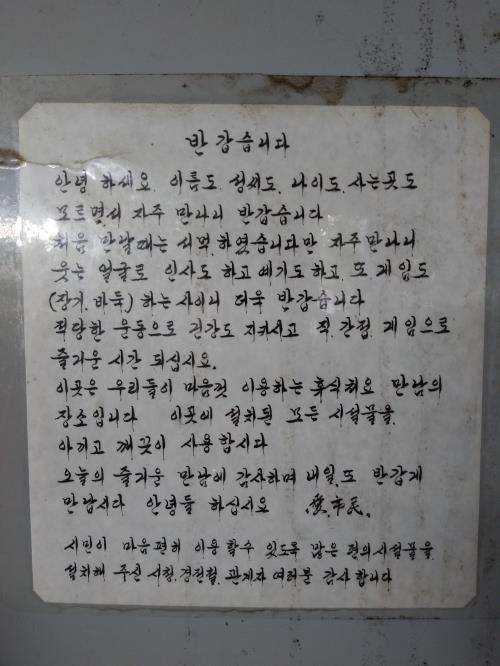 반갑습니다
안녕 하세요. 이름도. 성씨도. 나이도. 사는곳도
모르면서 자주 만나니 반갑습니다
처음 만날때는 서먹.하였습니다만 자주만나니
웃는 얼굴로 인사도 하고 얘기도하고. 또 게임도
(장기.바둑) 하는사이니 더욱 반갑습니다
적당한 운동으로 건강도 지키시고 직.간접.게임으로
즐거운 시간 되십시요.
이곳은 우리들이 마음껏 이용하는 휴식처요 만남의
장소입니다 이곳에 설치된 모든 시설물을.
아끼고 깨끗이 사용합시다
오늘의 즐거운 만남에 감사하며 내일.또 반갑게
만납시다 안녕들 하십시요 愛.市.民.
시민이 마음편히 이용할수 있도록 많은 편의시설물을
설치해 주신 시청.경전철.관계자 여러분 감사합니다